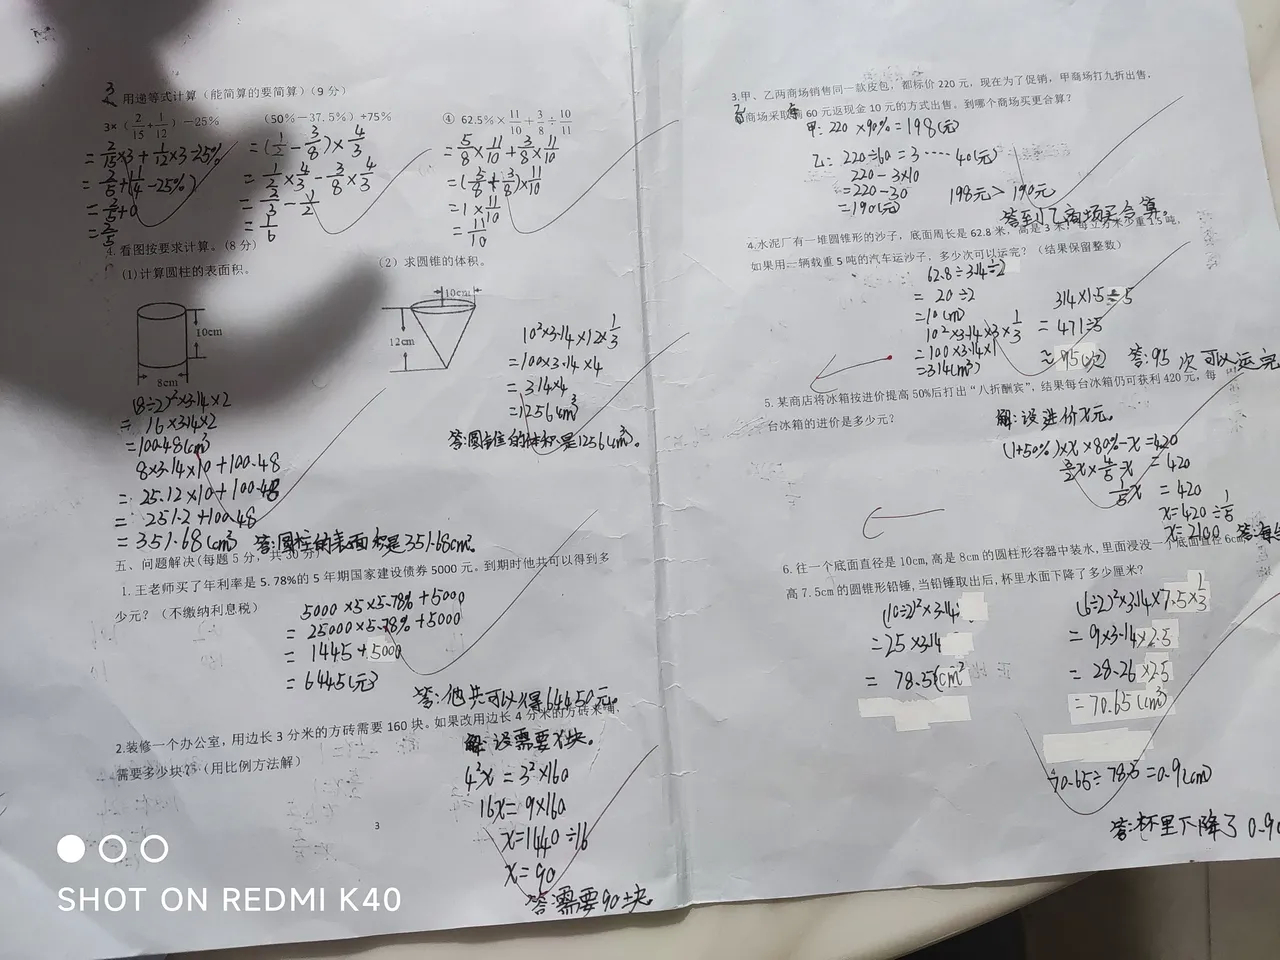 3 用递等式计算（能简算的要简算）（9 分）
3×(2/15+1/12)－25% （50%－37.5%）÷75% ④ 62.5%×11/10+3/8÷10/11
=2/15×3+1/12×3-25%
=2/5+(1/4-25%)
=2/5+0
=2/5
=(1/2-3/8)×4/3
=1/2×4/3-3/8×4/3
=2/3-1/2
=1/6
=5/8×11/10+3/8×11/10
=(5/8+3/8)×11/10
=1×11/10
=11/10
4. 看图按要求计算。(8 分)
(1)计算圆柱的表面积。 （2）求圆锥的体积。
10cm
8cm
(8÷2)²×3.14×2
= 16×3.14×2
=100.48(cm²)
8×3.14×10+100.48
= 25.12×10+100.48
= 251.2+100.48
= 351.68(cm²) 答:圆柱的表面积是351.68cm².
10cm
12cm
10²×3.14×12×1/3
=100×3.14×4
=314×4
=1256(cm³)
答:圆锥的体积是1256(cm³)。
五、问题解决(每题 5 分，共 30 分)
1.王老师买了年利率是 5.78%的 5 年期国家建设债券 5000 元。到期时他共可以得到多
少元？（不缴纳利息税）
5000×5×5.78%+5000
= 25000×5.78%+5000
= 1445+5000
= 6445(元)
答:他共可以得64450元。
2.装修一个办公室，用边长 3 分米的方砖需要 160 块。如果改用边长 4 分米的方砖来铺，
需要多少块？（用比例方法解）
解:设需要x块。
4²x=3²×160
16x=9×160
x=1440÷16
x=90
答:需要90块。
3
3.甲、乙两商场销售同一款皮包，都标价 220 元，现在为了促销，甲商场打九折出售，
乙商场采取满 60 元返现金 10 元的方式出售。到哪个商场买更合算？
甲:220×90%=198(元)
乙:220÷60=3····40(元)
220-3×10
=220-30
=190(元) 198元>190元
答到乙商场买合算.
4.水泥厂有一堆圆锥形的沙子，底面周长是 62.8 米，高是 3 米，每立方米沙重 1.5 吨，
如果用一辆载重 5 吨的汽车运沙子，多少次可以运完？（结果保留整数）
62.8÷3.14÷2
= 20÷2
=10(m)
10²×3.14×3×1/3
=100×3.14×1
=314(m³)
314×1.5÷5
=471÷5
≈95(次) 答:95次可以运完
5.某商店将冰箱按进价提高 50%后打出“八折酬宾”，结果每台冰箱仍可获利 420 元，每
台冰箱的进价是多少元？
解:设进价x元.
(1+50%)×x×80%-x=420
3/2x×4/5-x =420
1/5x =420
x=420÷1/5
x=2100 答:每台
6.往一个底面直径是 10cm,高是 8cm 的圆柱形容器中装水,里面浸没一个底面直径 6cm,
高 7.5cm 的圆锥形铅锤,当铅锤取出后,杯里水面下降了多少厘米?
(10÷2)²×3.14
=25×3.14
= 78.5(cm²
(6÷2)²×3.14×7.5×1/3
= 9×3.14×2.5
= 28.26×2.5
= 70.65(cm³)
70.65÷78.5=0.9(cm)
答:杯里下降了0.9c
SHOT ON REDMI K40